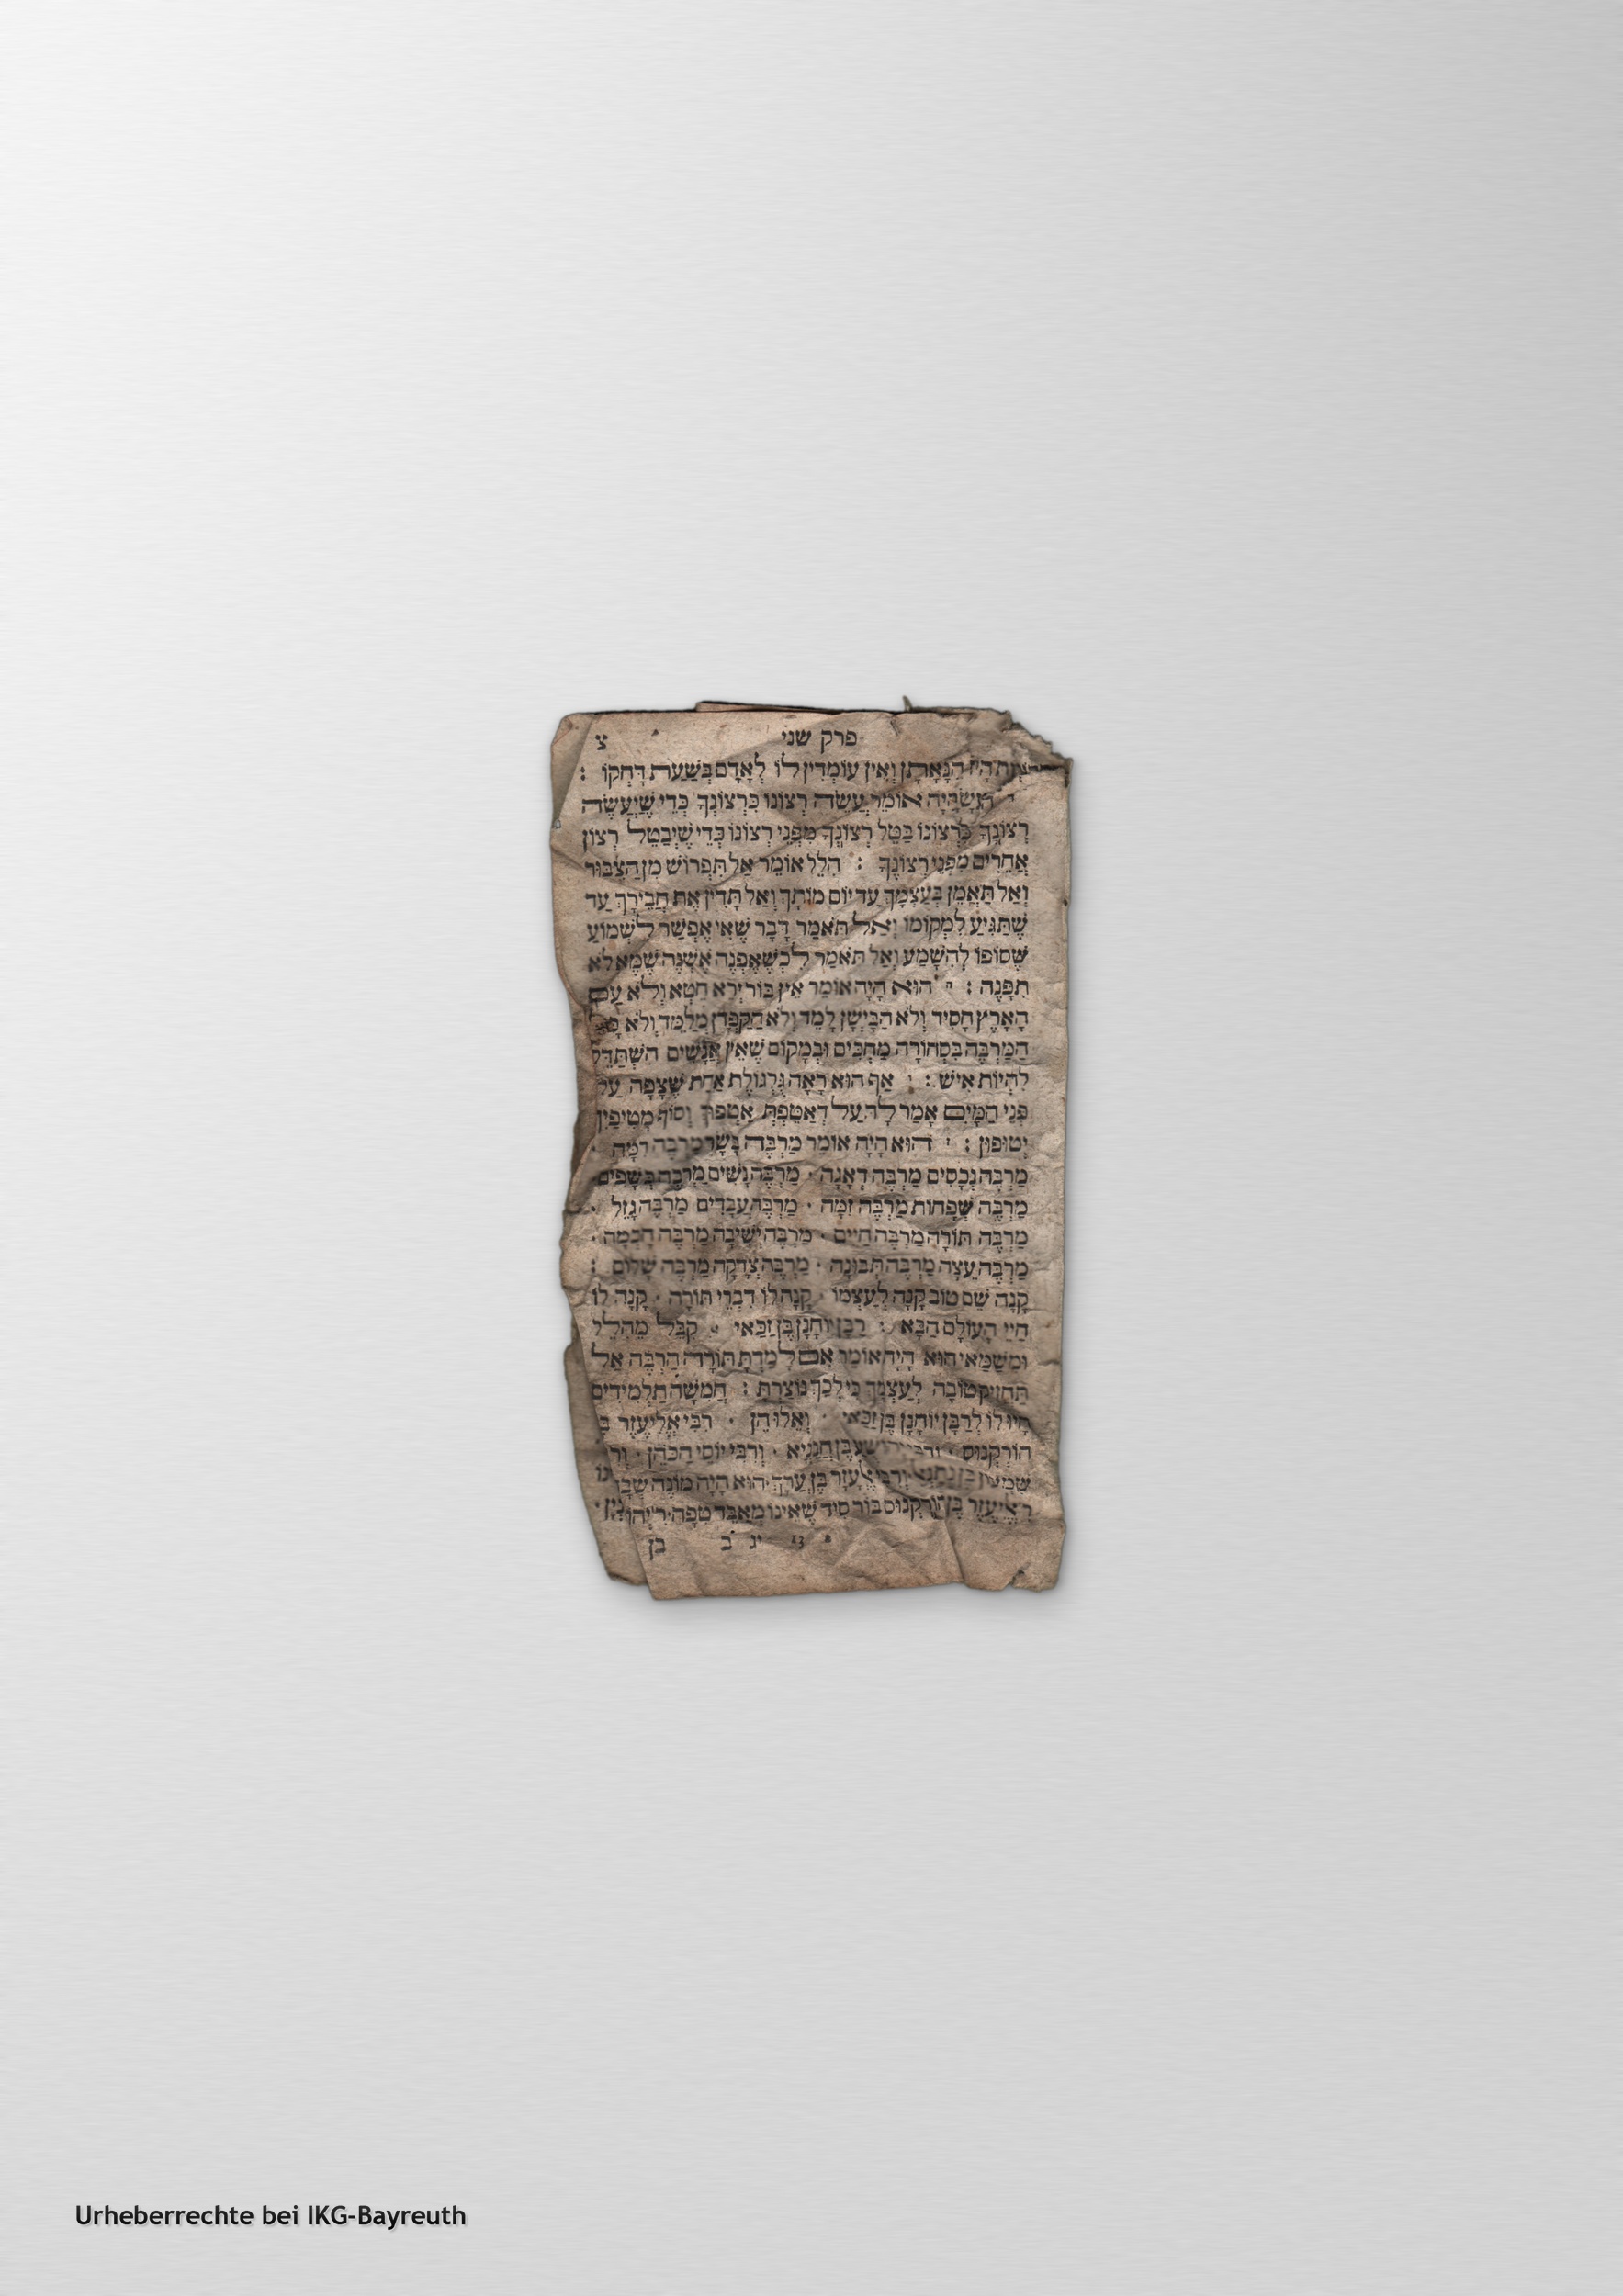 פרק שני צ
הֲנָאָתָן וְאֵין עוֹמְדִין לוֹ לְאָדָם בְּשַׁעַת דָּחְקוֹ :
הָיָה אוֹמֵר עֲשֵׂה רְצוֹנוֹ כִּרְצוֹנְךָ כְּדֵי שֶׁיַּעֲשֶׂה
רְצוֹנְךָ כִּרְצוֹנוֹ בַּטֵּל רְצוֹנְךָ מִפְּנֵי רְצוֹנוֹ כְּדֵי שֶׁיְּבַטֵּל רְצוֹן
אֲחֵרִים מִפְּנֵי רְצוֹנֶךָ : הִלֵּל אוֹמֵר אַל תִּפְרוֹשׁ מִן הַצִּבּוּר
וְאַל תַּאֲמֵן בְּעַצְמָךְ עַד יוֹם מוֹתָךְ וְאַל תָּדִין אֶת חֲבֵירָךְ עַד
שֶׁתַּגִּיעַ לִמְקוֹמוֹ וְאַל תֹּאמַר דָּבָר שֶׁאִי אֶפְשַׁר לִשְׁמוֹעַ
שֶׁסּוֹפוֹ לְהִשָּׁמַע וְאַל תֹּאמַר לִכְשֶׁאֶפְנֶה אֶשְׁנֶה שֶׁמָּא לֹא
תִפָּנֶה : הוּא הָיָה אוֹמֵר אֵין בּוֹר יְרֵא חֵטְא וְלֹא עַם
הָאָרֶץ חָסִיד וְלֹא הַבַּיְשָׁן לָמֵד וְלֹא הַקַּפְּדָן מְלַמֵּד וְלֹא כָּל
הַמַּרְבֶּה בִּסְחוֹרָה מַחְכִּים וּבְמָקוֹם שֶׁאֵין אֲנָשִׁים הִשְׁתַּדֵּל
לִהְיוֹת אִישׁ : אַף הוּא רָאָה גֻּלְגּוֹלֶת אַחַת שֶׁצָּפָה עַל
פְּנֵי הַמַּיִם אָמַר לָהּ עַל דְאַטֵפְתְּ אַטְפוּךְ וְסוֹף מְטִיפַיִךְ
יְטוּפוּן : הוּא הָיָה אוֹמֵר מַרְבֶּה בָשָׂר מַרְבֶּה רִמָּה ·
מַרְבֶּה נְכָסִים מַרְבֶּה דְאָגָה · מַרְבֶּה נָשִׁים מַרְבֶּה כְשָׁפִים ·
מַרְבֶּה שְׁפָחוֹת מַרְבֶּה זִמָּה · מַרְבֶּה עֲבָדִים מַרְבֶּה גָזֵל ·
מַרְבֶּה תוֹרָה מַרְבֶּה חַיִּים · מַרְבֶּה יְשִׁיבָה מַרְבֶּה חָכְמָה ·
מַרְבֶּה עֵצָה מַרְבֶּה תְבוּנָה · מַרְבֶּה צְדָקָה מַרְבֶּה שָׁלוֹם :
קָנָה שֵׁם טוֹב קָנָה לְעַצְמוֹ · קָנָה לוֹ דִבְרֵי תוֹרָה · קָנָה לוֹ
חַיֵּי הָעוֹלָם הַבָּא : רַבָּן יוֹחָנָן בֶּן זַכַּאי · קִבֵּל מֵהִלֵּל
וּמִשַּׁמַּאי הוּא הָיָה אוֹמֵר אִם לָמַדְתָּ תּוֹרָה הַרְבֵּה אַל
תַּחֲזִיק טוֹבָה לְעַצְמְךָ כִּי לְכָךְ נוֹצַרְתָּ : חֲמִשָּׁה תַלְמִידִים
הָיוּ לוֹ לְרַבָּן יוֹחָנָן בֶּן זַכַּאי · וְאֵלּוּ הֵן · רִבִּי אֱלִיעֶזֶר
הוֹרְקְנוֹס · יְהוֹשֻׁעַ בֶּן חֲנַנְיָא · וְרִבִּי יוֹסֵי הַכֹּהֵן ·
שִׁמְעוֹן בֶּן נְתַנְאֵל וְרִבִּי אֶלְעָזָר בֶּן עֲרָךְ · הוּא הָיָה מוֹנֶה
אֱלִיעֶזֶר בֶּן הוֹרְקְנוֹס בּוֹר סוּד שֶׁאֵינוֹ מְאַבֵּד טִפָּה
13 יג ב בן
Urheberrechte bei IKG-Bayreuth